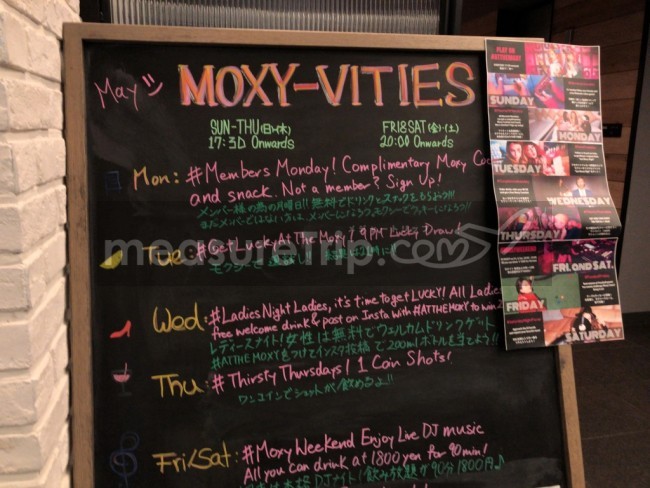 May
MOXY-VITIES
SUN-THU(日-木)
17:30 Onwards
FRI&SAT(金)・(土)
20:00 Onwards
Mon: #Members Monday! Complimentary Moxy Coc
and snack. Not a member? Sign Up!
メンバー様の為の月曜日!!無料でドリンクとスナックをもらおう!!
Tue: #GetLuckyAtTheMoxy! 9PM Lucky Draw!
モクシーで
Wed: #Ladies Night Ladies, it's time to get LUCKY! All Ladie
free welcome drink & post on Insta with #ATTHEMOXY to win 2
レディースナイト!女性は無料でウェルカムドリンクゲット
#ATTHEMOXYをつけてインスタ投稿で200mlボトルを当てよう!!
Thu: #Thirsty Thursdays! 1 Coin Shots!
ワンコインでショットが飲めるよ!!
Fri/Sat: #Moxy Weekend Enjoy Live DJ music
All you can drink at 1800 yen for 90min!
本格DJナイト!飲み放題が90分1800円♪
PLAY ON
SUNDAY
MONDAY
TUESDAY
WEDNESDAY
THURSDAY
FRI. OND SAT.
FRIDAY
SATURDAY
measureTrip.com